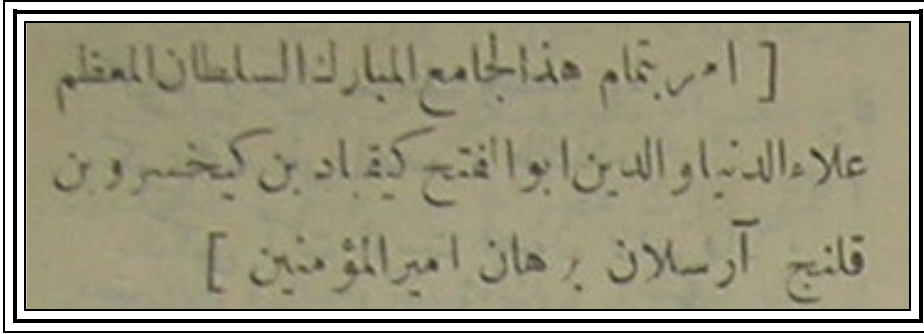 [ امر بتمام هذالجامع المبارك السلطان المعظم
علاءالدنيا و الدين ابوا لفتح كيقباد بن كيخسر و بن
قلنج آرسلان بر هان اميرالمؤمنين ]